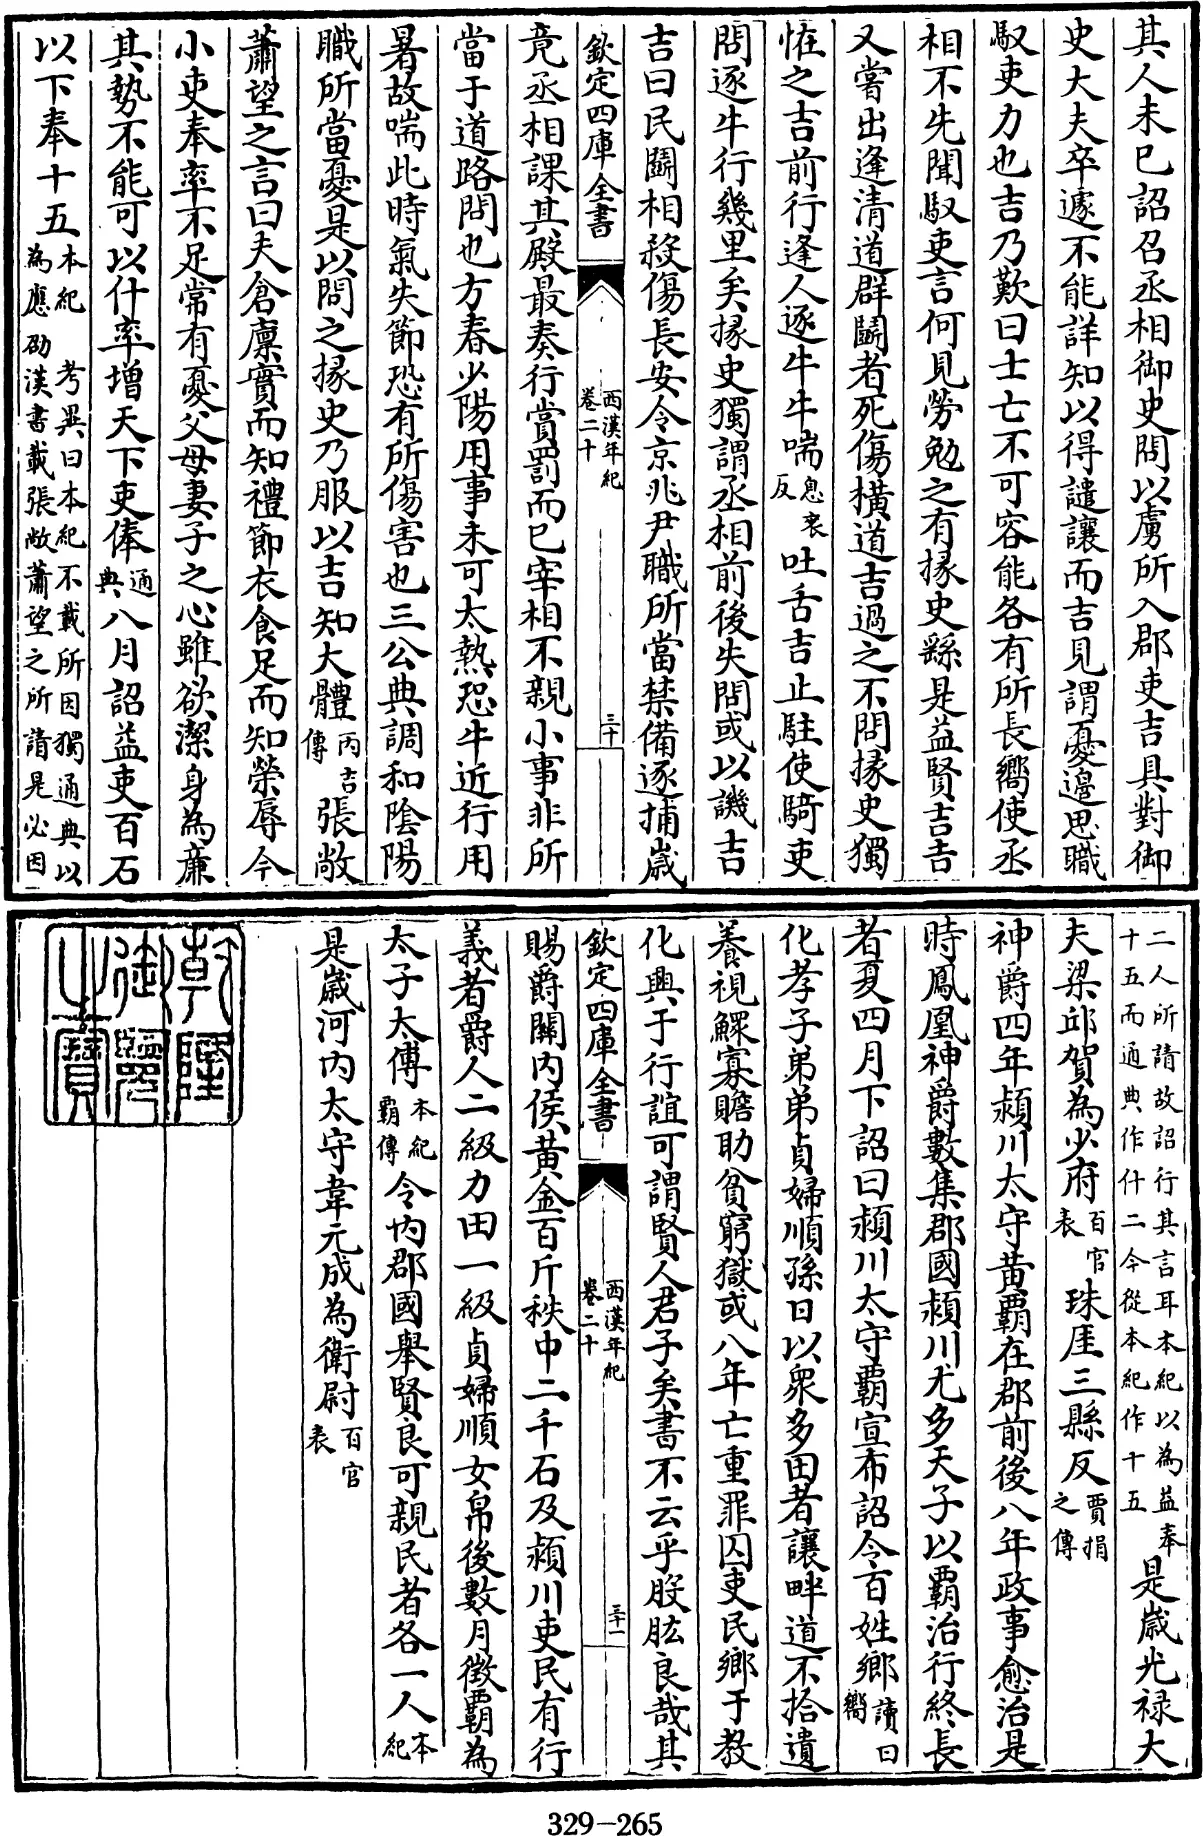 其人未已詔召丞相御史問以虜所入郡吏吉具對御
史大夫卒遽不能詳知以得譴讓而吉見謂憂邊思職
馭吏力也吉乃歎曰士亡不可容能各有所長嚮使丞
相不先聞馭吏言何見勞勉之有掾史繇是益賢吉吉
又嘗出逢清道群鬬者死傷橫道吉過之不問掾史獨
恠之吉前行逢人逐牛牛喘息衺反吐舌吉止駐使騎吏
問逐牛行幾里矣掾史獨謂丞相前後失問或以譏吉
吉曰民鬬相殺傷長安令京兆尹職所當禁備逐捕歲
欽定四庫全書 西漢年紀卷二十 三十
竟丞相課其殿最奏行賞罰而已宰相不親小事非所
當于道路問也方春少陽用事未可太熱恐牛近行用
暑故喘此時氣失節恐有所傷害也三公典調和陰陽
職所當憂是以問之掾史乃服以吉知大體丙吉傳張敞
蕭望之言曰夫倉廩實而知禮節衣食足而知榮辱今
小吏奉率不足常有憂父母妻子之心雖欲潔身為廉
其勢不能可以什率增天下吏俸通典八月詔益吏百石
以下奉十五本紀 考異曰本紀不載所因獨通典以為應劭漢書載張敞蕭望之所請是必因
二人所請故詔行其言耳本紀以為益奉十五而通典作什二今從本紀作十五是歲光祿大
夫梁邱賀為少府百官表珠厓三縣反賈捐之傳
神爵四年潁川太守黃霸在郡前後八年政事愈治是
時鳳凰神爵數集郡國潁川尤多天子以霸治行終長
者夏四月下詔曰潁川太守霸宣布詔令百姓鄉讀曰嚮
化孝子弟弟貞婦順孫日以衆多田者讓畔道不拾遺
養視鰥寡贍助貧窮獄或八年亡重罪囚吏民鄉于教
化興于行誼可謂賢人君子矣書不云乎股肱良哉其
欽定四庫全書 西漢年紀卷二十 三十一
賜爵關內侯黃金百斤秩中二千石及潁川吏民有行
義者爵人二級力田一級貞婦順女帛後數月徵霸為
太子太傅本紀霸傳令內郡國舉賢良可親民者各一人本紀
是歲河內太守韋元成為衛尉百官表
乾隆御覽之寶
329-265